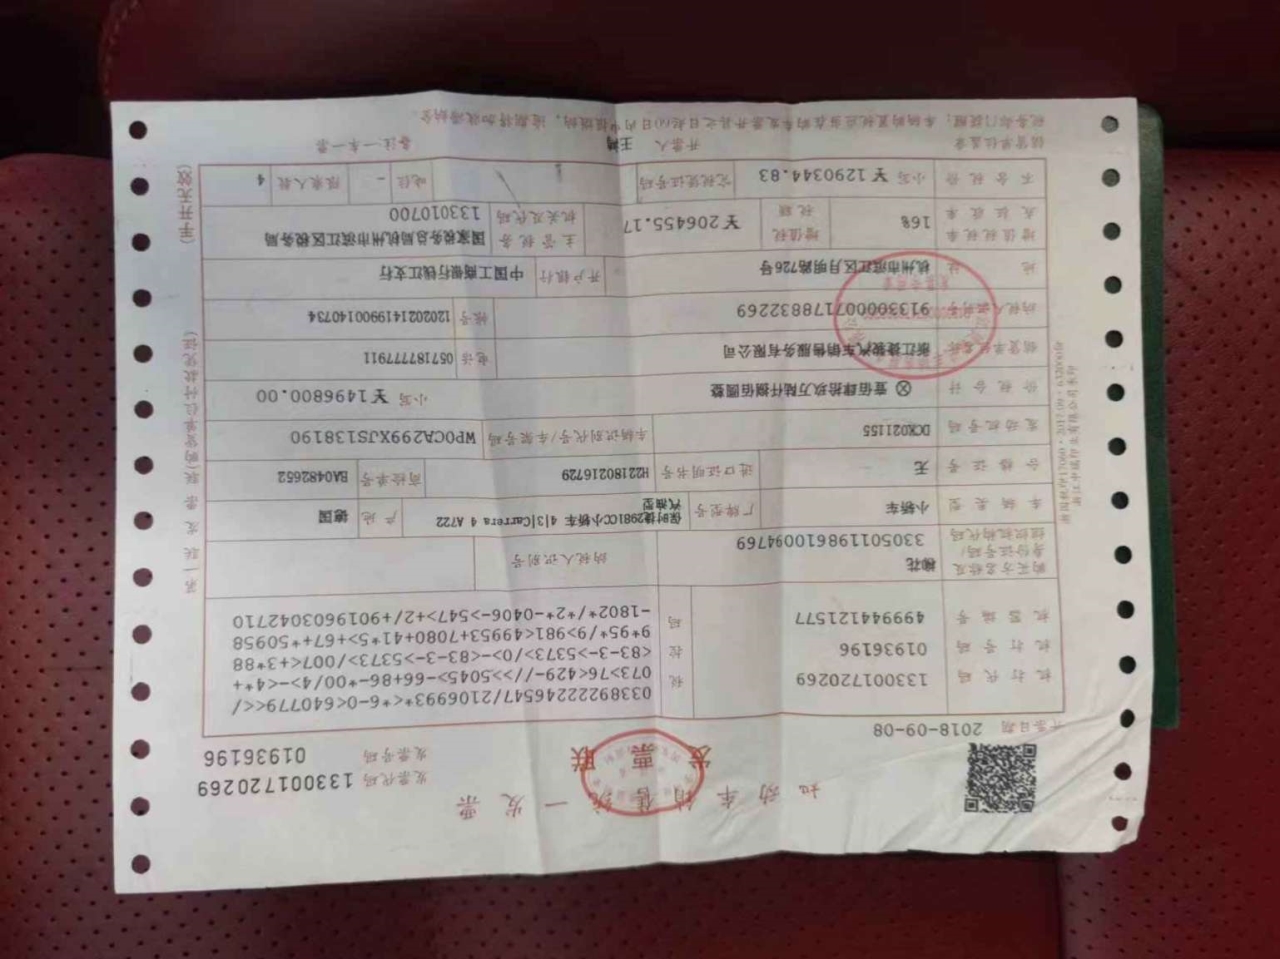 机动车销售统一发票
发票联
发票代码 133001720269
发票号码 01936196
开票日期 2018-09-08
机打代码 133001720269
机打号码 01936196
机器编号 499944121577
税控码
033892222246547/2106993*<*6-0<640779<</
073>76<429-//>>5045>-66+86-*00/4>-<4*+
<83-3->5373>/0>-<83-3->5373>/007<+3*88
9*95*/9>981<49953+7080+41*5>+67+*50958
-1802*/*2*-0406->547>+2/+9019603042710
购买方名称及身份证号码/组织机构代码 柳花
330501198610094769
纳税人识别号
车辆类型 小轿车 厂牌型号 保时捷2981CC小轿车 4|3|Carrera 4 A722 汽油型 产地 德国
合格证号 无 进口证明书号 H221180216729 商检单号 BA0482652
发动机号码 DCK021155 车辆识别代号/车架号码 WP0CA299XJS138190
价税合计 ⊗壹佰肆拾玖万陆仟捌佰圆整 小写 ￥1496800.00
销货单位名称 浙江捷骏汽车销售服务有限公司 电话 057187777911
纳税人识别号 913300007178832269 账号 1202021419900140734
地址 杭州市滨江区月明路726号 开户银行 中国工商银行钱江支行
增值税税率或征收率 16% 增值税税额 ￥206455.17 主管税务机关及代码 国家税务总局杭州市滨江区税务局
133010700
不含税价 小写 ￥1290344.83 完税凭证号码 吨位 - 限乘人数 4
销货单位盖章 开票人 王鸿 备注:一车一票
第一联 发票联(购货单位付款凭证)
(手开无效)